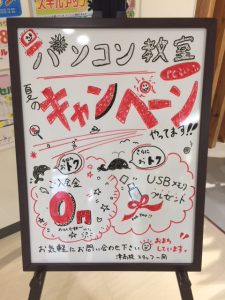 スキルアップ
パソコン教室
夏の
キャンペーン
やってます!!
さらに
おトク
おトク
入会金
0円
USBメモリ
プレゼント
お気軽にお問い合わせ下さい
おまち
しています。
スタッフ一同